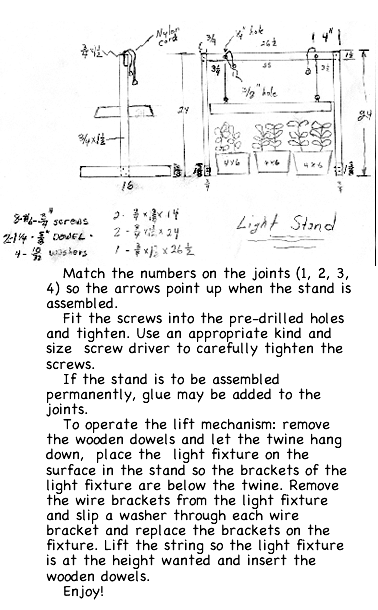 Nylon
cord
3/4 x 1 1/2
3/4
1/4" hole
26 1/2
4"
3/4
33
3/2" hole
24
24
3/4 x 1 1/2
4x6
4x6
4x6
18
3/4
screws
2-1 1/4 - 3/8" DOWEL
washers
2 - 3/4 x 1 1/2 x 24
1 - 3/4 x 1 1/2 x 26 1/2
Light Stand
Match the numbers on the joints (1, 2, 3,
4) so the arrows point up when the stand is
assembled.
Fit the screws into the pre-drilled holes
and tighten. Use an appropriate kind and
size screw driver to carefully tighten the
screws.
If the stand is to be assembled
permanently, glue may be added to the
joints.
To operate the lift mechanism: remove
the wooden dowels and let the twine hang
down, place the light fixture on the
surface in the stand so the brackets of the
light fixture are below the twine. Remove
the wire brackets from the light fixture
and slip a washer through each wire
bracket and replace the brackets on the
fixture. Lift the string so the light fixture
is at the height wanted and insert the
wooden dowels.
Enjoy!